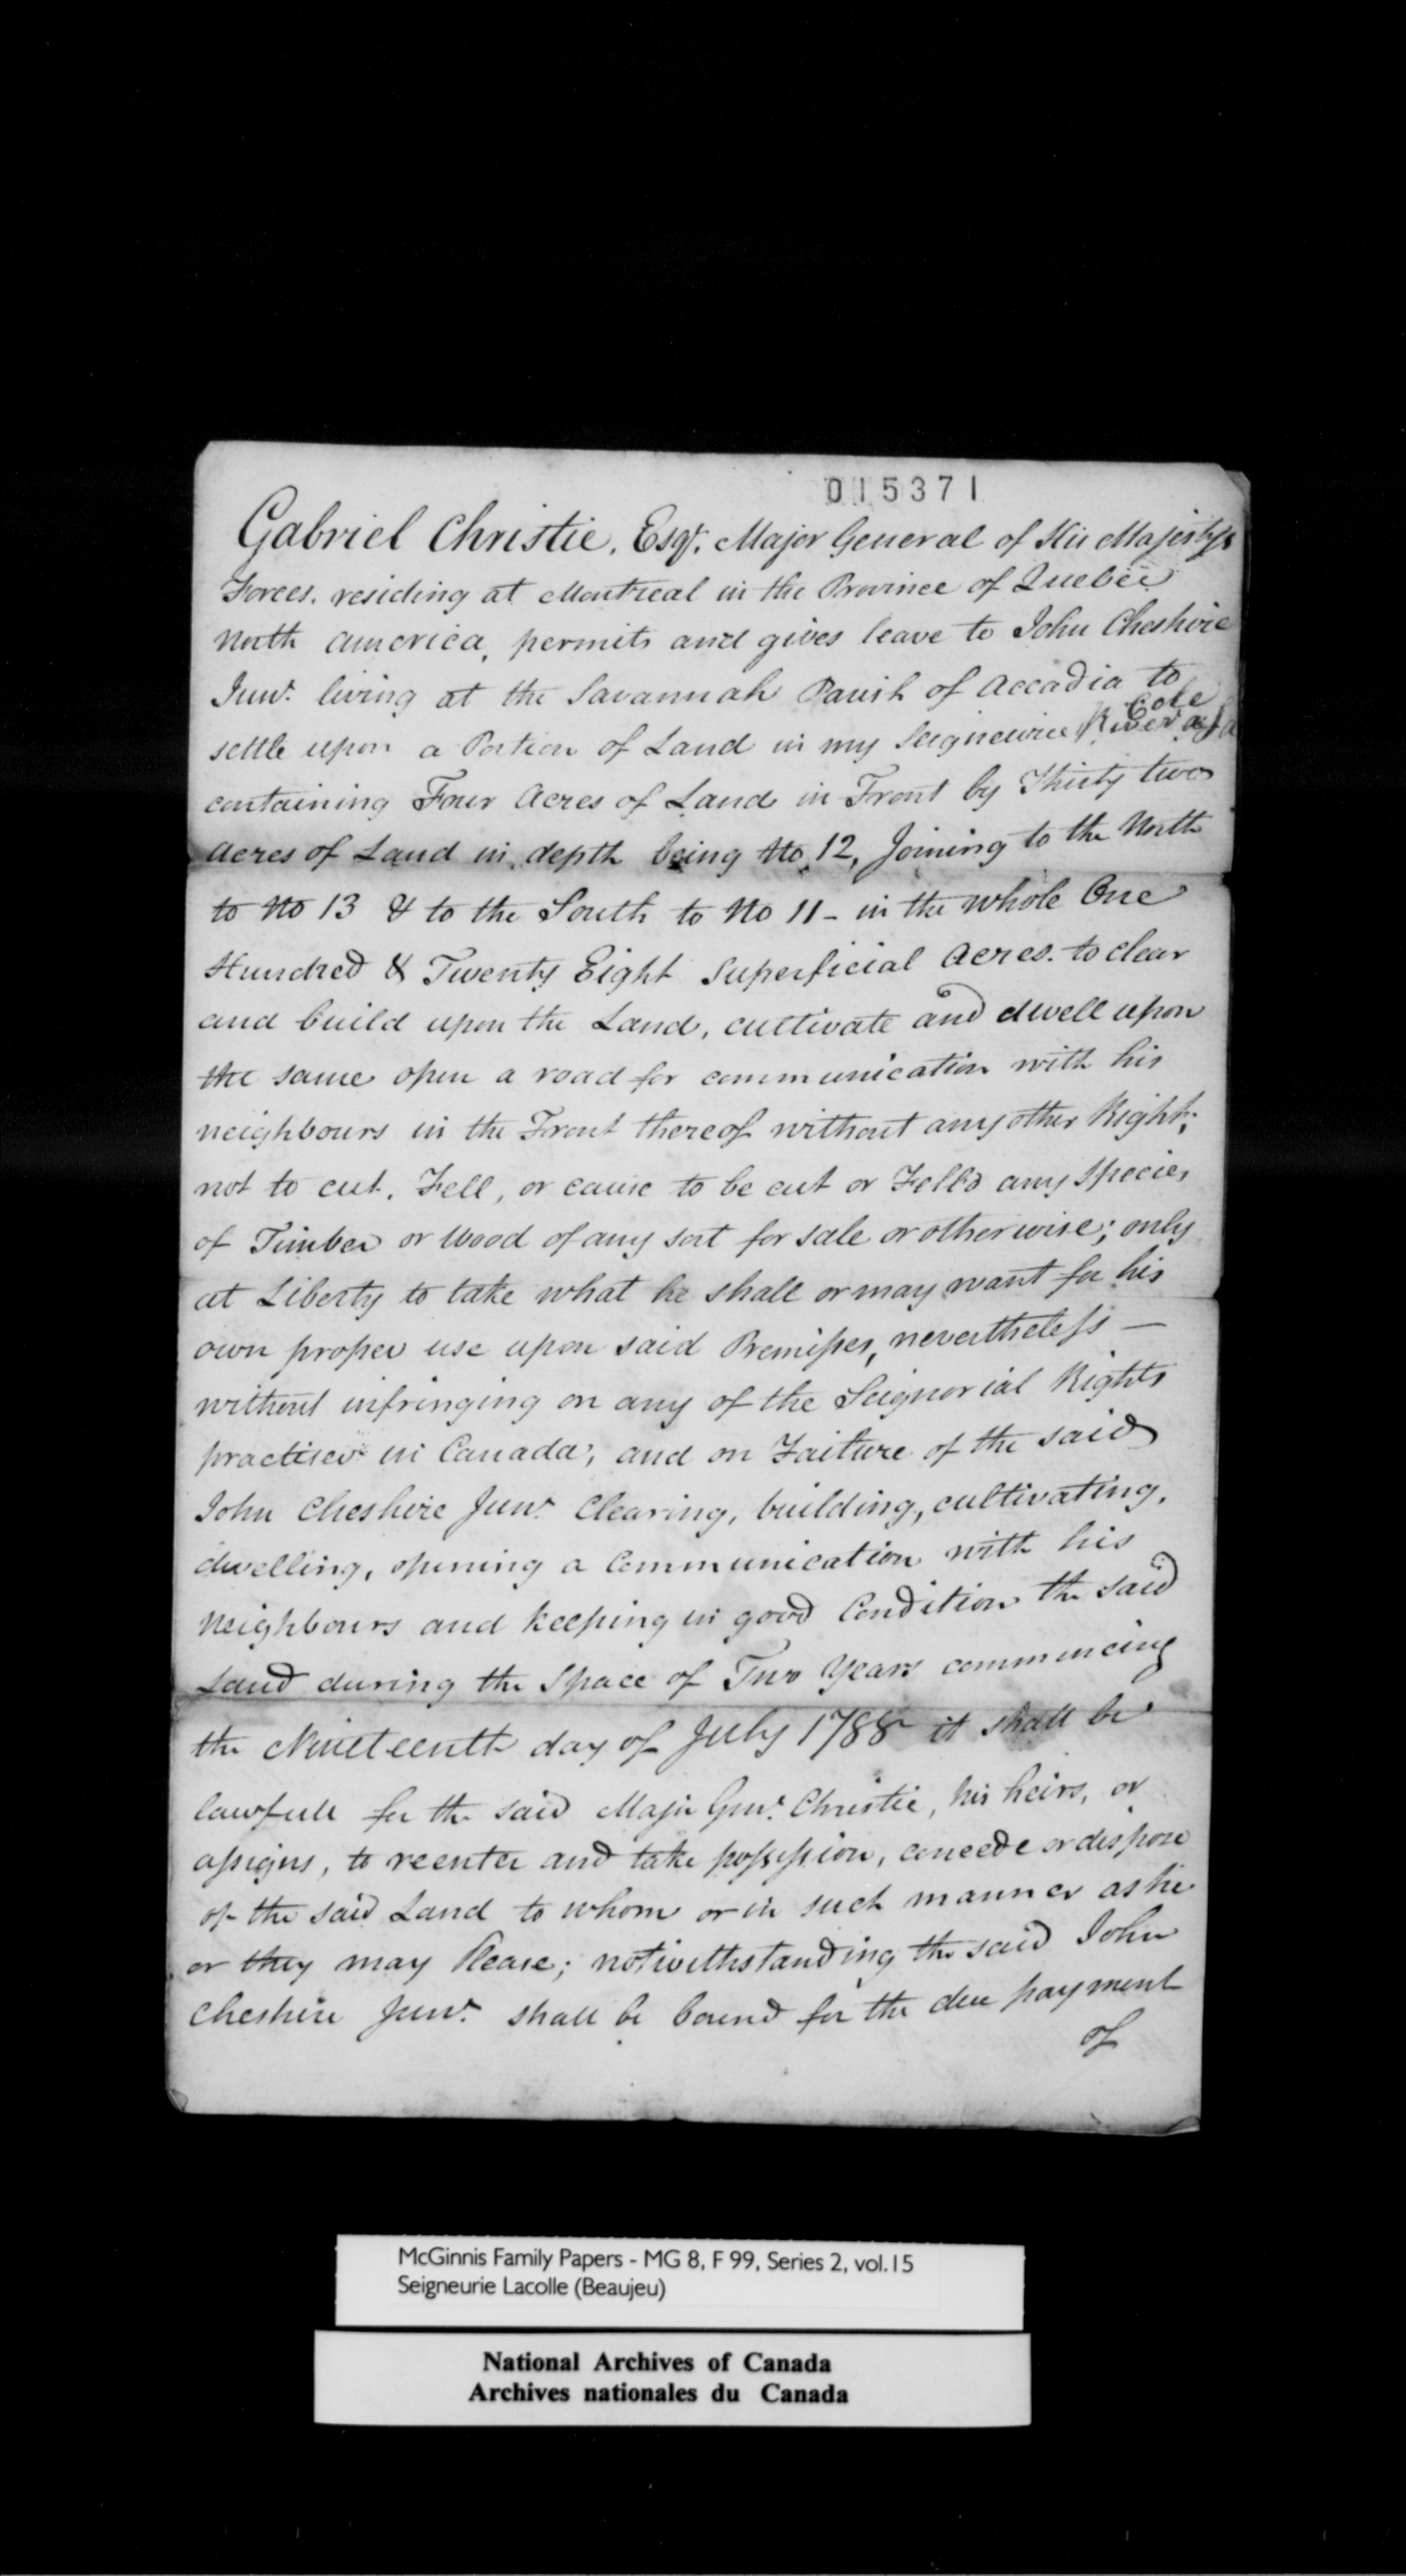 015371
Gabriel Christie, Esqr. Major General of His Majestys
Forces. residing at Montreal in the Province of Quebec
North America, permits and gives leave to John Cheshire
Junr. living at the Savannah Parish of Accadia to
Cole
settle upon a Portion of Land in my Seigneurie River a La
containing Four Acres of Land in Front by Thirty two
Acres of Land in depth being No. 12, Joining to the North
to No 13 & to the South to No 11 - in the whole One
Hundred & Twenty Eight Superficial Acres. to clear
and build upon the Land, cultivate and dwell upon
the same open a road for communication with his
neighbours in the Front thereof without any other Right;
not to cut, Fell, or cause to be cut or Fell'd any Species
of Timber or Wood of any sort for sale or otherwise; only
at Liberty to take what he shall or may want for his
own proper use upon said Premisses, nevertheless —
without infringing on any of the Seignorial Rights
practised in Canada, and on Failure of the said
John Cheshire Junr. Clearing, building, cultivating,
dwelling, opening a Communication with his
Neighbours and keeping in good Condition the said
Land during the Space of Two Years commencing
the Nineteenth day of July 1788 it shall be
lawfull for the said Major Genl. Christie, his heirs, or
assigns, to reenter and take possession, concede or dispose
of the said Land to whom or in such manner as he
or they may Please; notwithstanding the said John
Cheshire Junr. shall be bound for the due payment
of
McGinnis Family Papers - MG 8, F 99, Series 2, vol.15
Seigneurie Lacolle (Beaujeu)
National Archives of Canada
Archives nationales du Canada